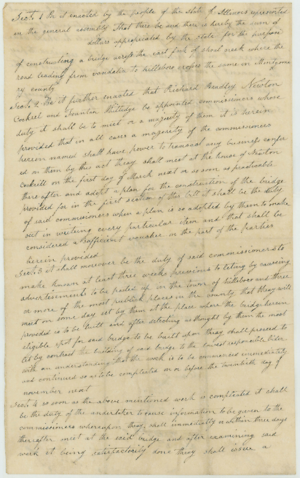 Sect. 1 Be it enacted by the people of the State of Illinois represented
in the general assembly That there be and there is hereby the sum of
dollars appropriated by the state for the purpose
of constructing a bridge across the east fork of shoal creek where the
road leading from vandalia to hillsboro crosses the same in Montgome
ry county
Sect. 2 Be it further enacted that Richard Bradley Newton
Cockrel and Rutledge be appointed commissioners whose
duty it shall be to meet or a majority of them it is herein
provided that in all cases a majority of the commissioners
herein named shall have power to transact any business confer
ed on them by this act they shall meet at the house of Newton
Cockrells on the first day of March next or as soon as practicable
thereafter and adopt a plan for the construction of the bridge
provided for in the first section of this bill it shall be the duty
of said commissioners when a plan is so adopted by them to make
out in writing every particular item and that shall be
considered a sufficient voucher in the part of the parties
herein provided
Sect. 3 it shall moreover be the duty of said commissioners to
make known at least three weeks previous to letting by causing
advertisements to be posted up in the town of Hillsboro and three
or more of the most publick places in the county that they will
meet on some day set by them at the place where the bridge herein
provided is to be built and after selecting as thought by them the most
eligible spot for said bridge to be built upon they shall proceed to
let by contract the building of said bridge to the lowest responsible bidder
with an understanding that the work is to be commenced immediately
and continued on to be completed on or before the twentieth day of
november next
Sect. 4 as soon as the above mentioned work is completed it shall
be the duty of the undertaker to cause information to be given to the
commissioners whereupon they shall immediately within three days
thereafter meet at the said bridge and after examining said
work it being satisfactorily done they shall issue a